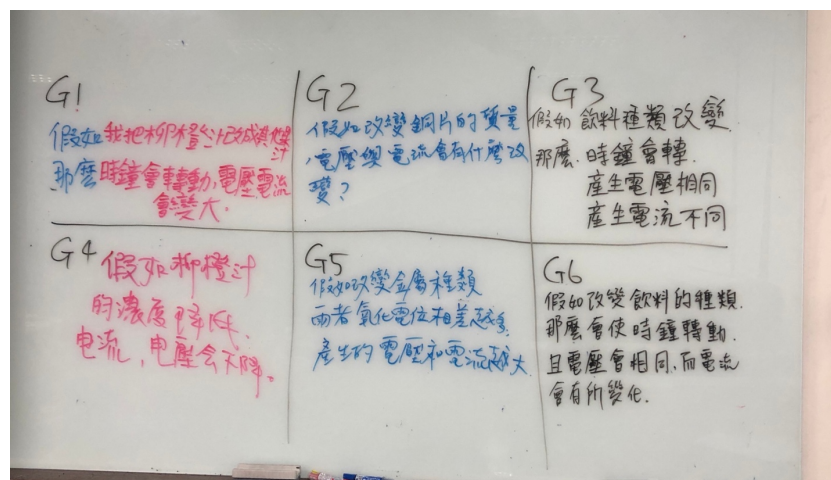 G1
假如我把柳橙汁改成其他果汁
那麼時鐘會轉動,電壓電流
會變大.
G2
假如改變銅片的質量
,電壓與電流會有什麼改
變?
G3
假如飲料種類改變.
那麼.時鐘會轉.
產生電壓相同
產生電流不同
G4
假如柳橙汁
的濃度降低.
電流,電壓會下降。
G5
假如改變金屬種類
兩者氧化電位相差越多
產生的電壓和電流越大
G6
假如改變飲料的種類.
那麼會使時鐘轉動.
且電壓會相同.而電流
會有所變化.